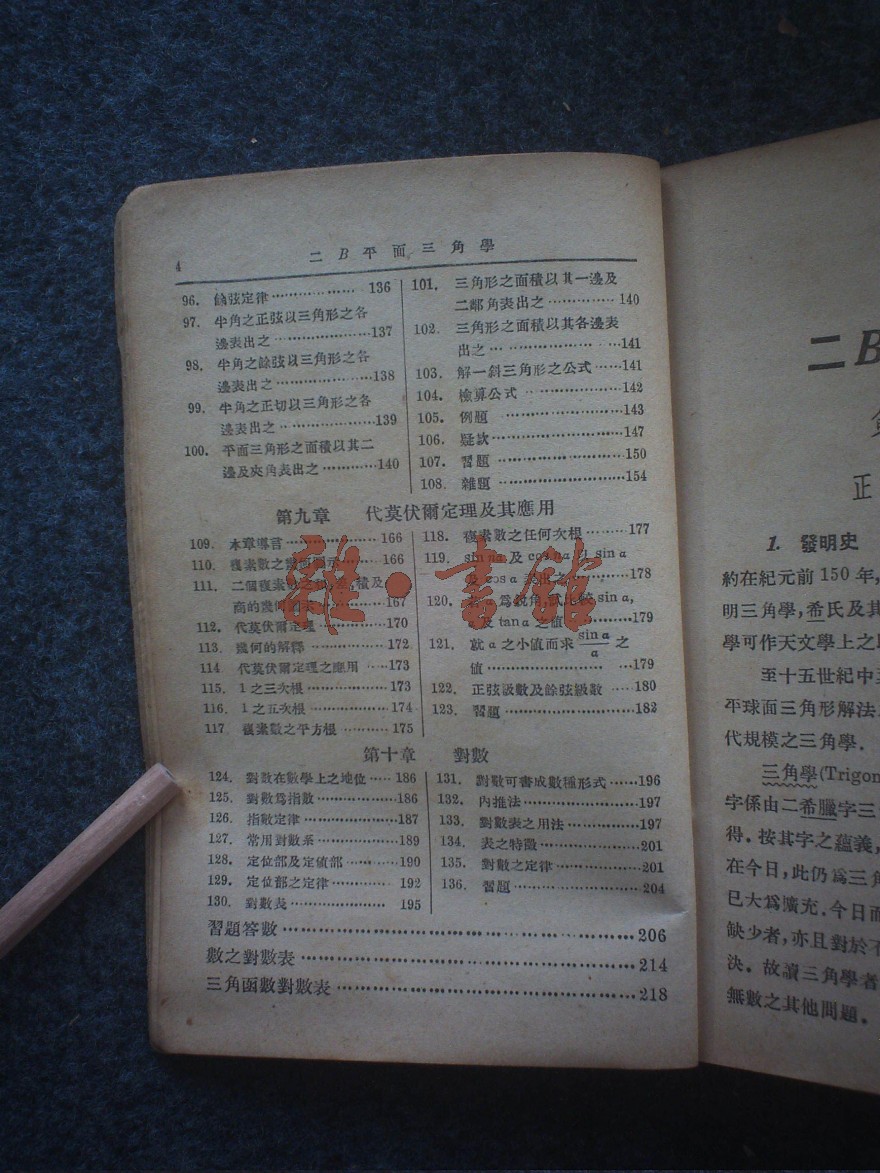 4
二B平面三角學
96. 餘弦定律 136
97. 半角之正弦以三角形之各
邊表出之 137
98. 半角之餘弦以三角形之各
邊表出之 138
99. 半角之正切以三角形之各
邊表出之 139
100. 平面三角形之面積以其二
邊及夾角表出之 140
101. 三角形之面積以其一邊及
二鄰角表出之 140
102. 三角形之面積以其各邊表
出之 141
103. 解一斜三角形之公式 141
104. 檢算公式 142
105. 例題 143
106. 疑款 147
107. 習題 150
108. 雜題 154
第九章 代莫伏爾定理及其應用
109. 本章導言 166
110. 複素數之幾何圖示 166
111. 二個複素數之和,差,積及
商的幾何圖表 167
112. 代莫伏爾定理 170
113. 幾何的解釋 172
114 代莫伏爾定理之應用 173
115. 1之三次根 173
116. 1之五次根 174
117. 複素數之平方根 175
118. 複素數之任何次根 177
119. sin nα 及 cos nα 以 sin α
及 cos α 表出之 178
120. 若 α 爲銳角,試比較 sin α,
及 tan α 之值 179
121. 就 α 之小值而求 sin α/α 之
值 179
122. 正弦級數及餘弦級數 180
123. 習題 182
第十章 對數
124. 對數在數學上之地位 186
125. 對數爲指數 186
126. 指數定律 187
127. 常用對數系 189
128. 定位部及定值部 190
129. 定位部之定律 192
130. 對數表 195
131. 對數可書成數種形式 196
132. 內推法 197
133. 對數表之用法 197
134. 表之特徵 201
135. 對數之定律 201
136. 習題 204
習題答數 206
數之對數表 214
三角函數對數表 218
雜·書館
二B
正
1. 發明史
約在紀元前150年,
明三角學,希氏及其
學可作天文學上之
至十五世紀中
平球面三角形解法
代規模之三角學.
三角學(Trigon
字係由二希臘字三
得.按其字之蘊義,
在今日,此仍爲三角
已大爲擴充.今日而
缺少者,亦且對於
決.故讀三角學者
無數之其他問題.